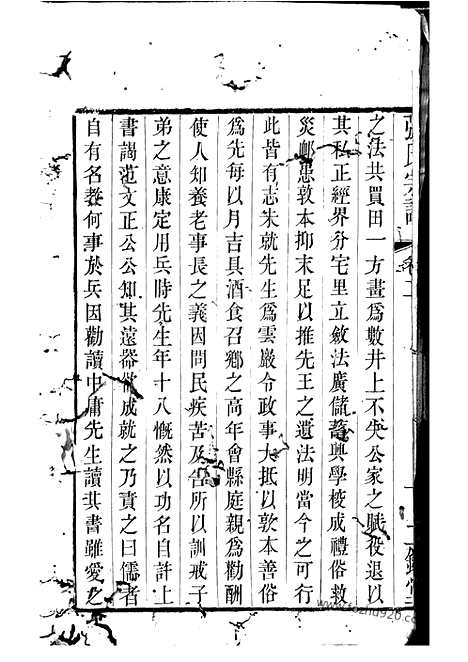 張氏宗譜 卷二
之法共買田一方畫爲數井上不失公家之賦役退以
其私正經界分宅里立斂法廣儲蓄興學校成禮俗救
災卹患敦本抑末足以推先王之遺法明當今之可行
此皆有志未就先生爲雲巖令政事大抵以敦本善俗
爲先每以月吉具酒食召鄉之高年會縣庭親爲勸酬
使人知養老事長之義因問民疾苦及告所以訓戒子
弟之意康定用兵時先生年十八慨然以功名自許上
書謁范文正公公知其遠器欲成就之乃責之曰儒者
自有名教何事於兵因勸讀中庸先生讀其書雖愛之